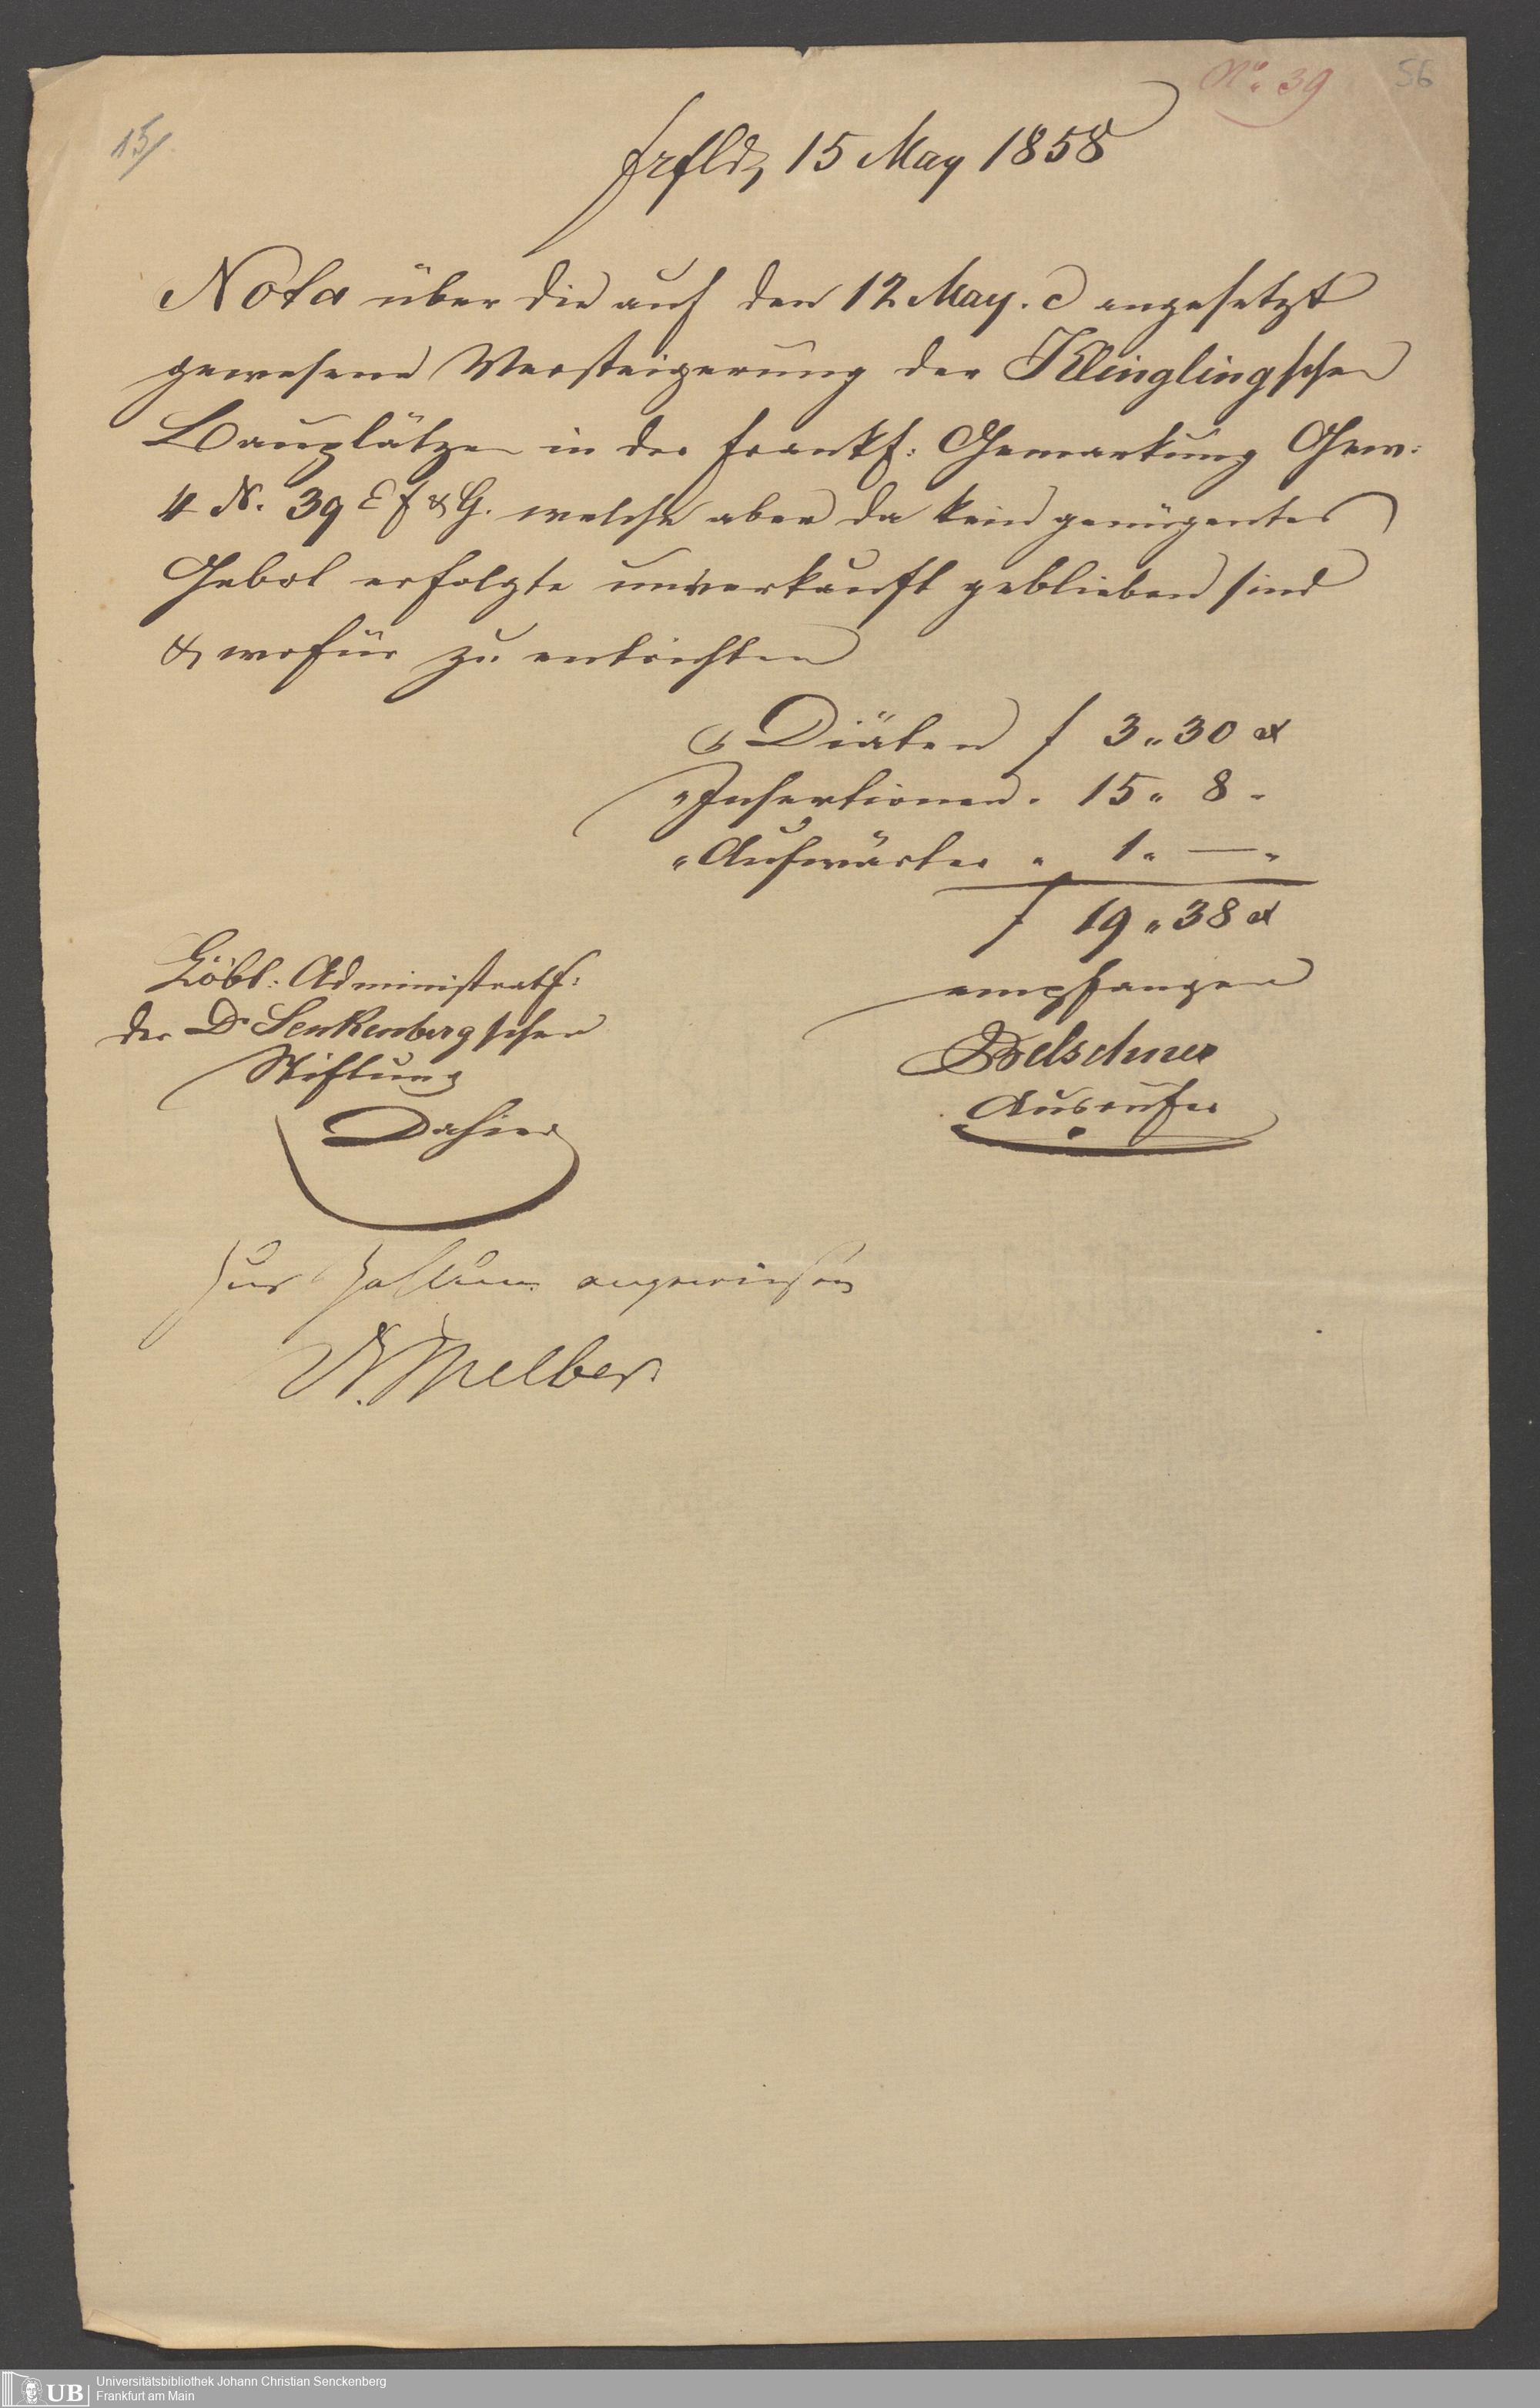 No. 39
56
15/
Frkfld, 15 May 1858
Nota über die auf den 12 May. c angesetzt
gewesene Versteigerung der Klinglingschen
Bauplätze in der Frankf: Gemarkung Gew:
4 N. 39 E f & G. welche aber da kein genügentes
Gebot erfolgte unverkauft geblieben sind
& wofür zu entrichten
Diäten f 3 „ 30 x
„ Insertionen „ 15 „ 8 „
„ Aufwärter „ 1 „ — „
f 19 „ 38 x
Löbl: Administratf:
der Dr Senkenbergschen
Stiftung
Dahier
empfangen
Belschner
Ausrufer
Zur Zahlung angewiesen
Dr. Melber.
UB
Universitätsbibliothek Johann Christian Senckenberg
Frankfurt am Main